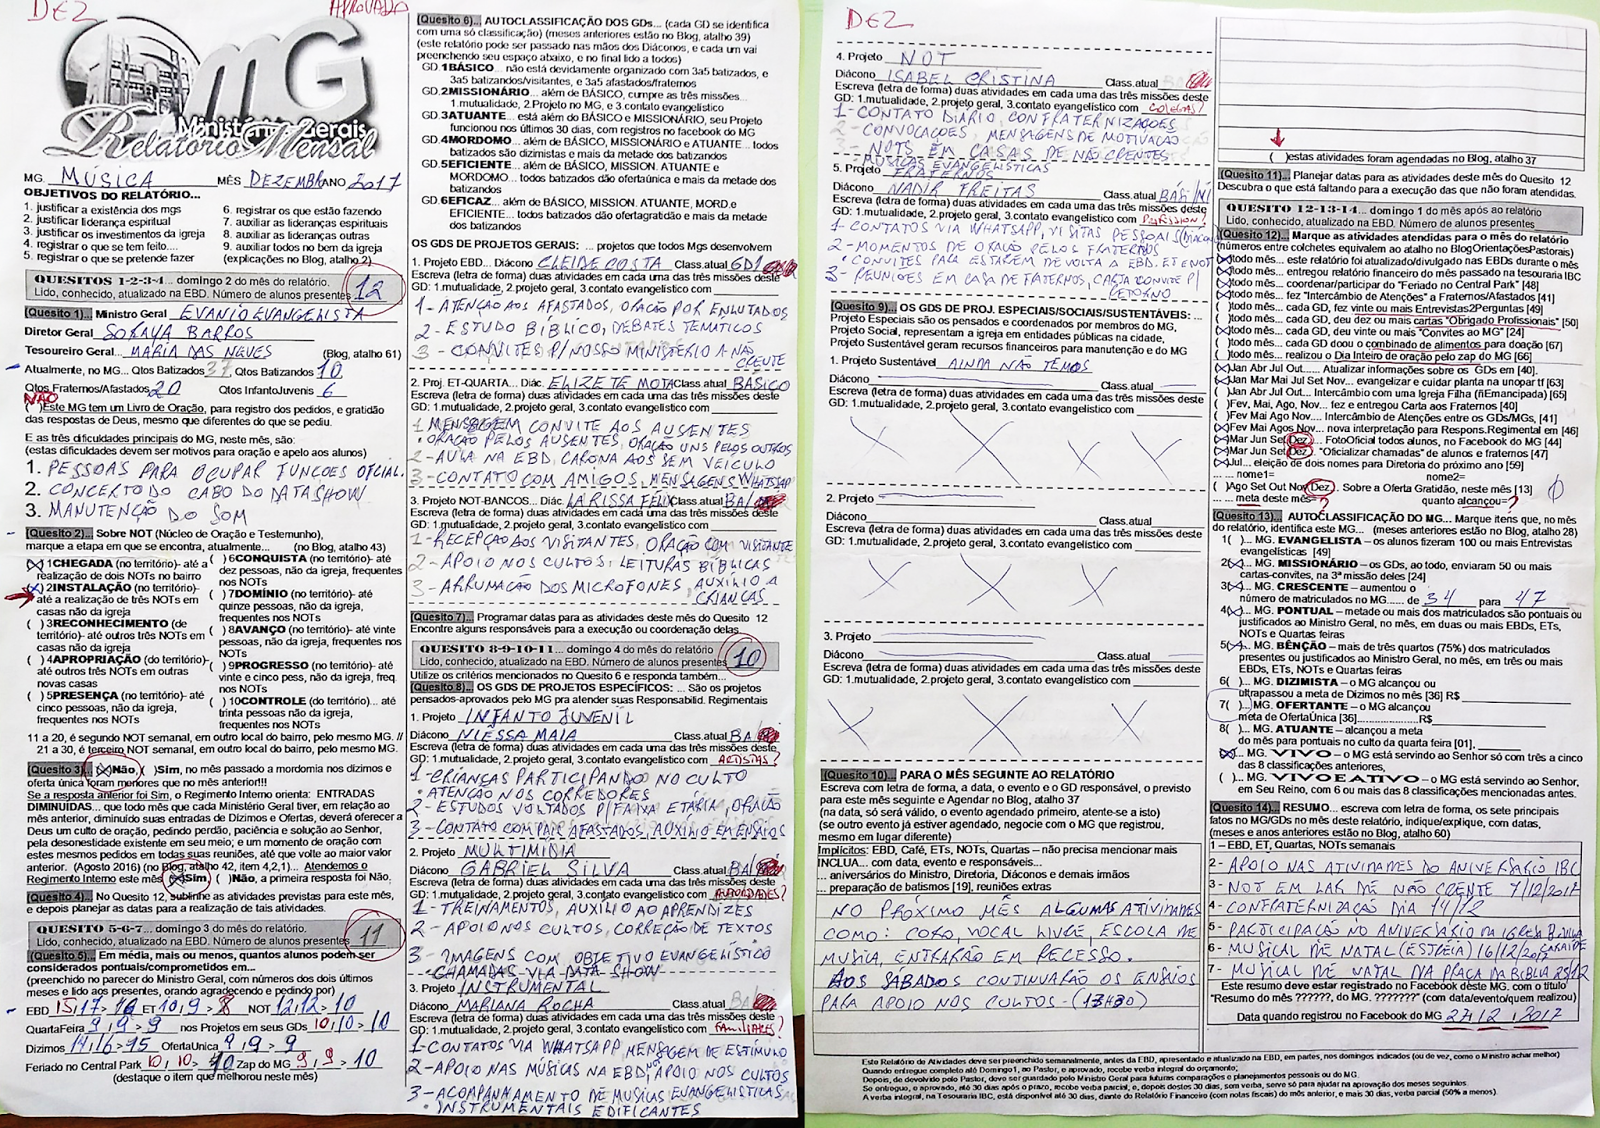 DEZ
APROVADO
mG
Ministérios Gerais
Relatório Mensal
MG. MÚSICA MÊS DEZEMBRO ANO 2017
OBJETIVOS DO RELATÓRIO...
1. justificar a existência dos mgs
2. justificar liderança espiritual
3. justificar os investimentos da igreja
4. registrar o que se tem feito....
5. registrar o que se pretende fazer
6. registrar os que estão fazendo
7. auxiliar as lideranças espirituais
8. auxiliar as lideranças outras
9. auxiliar todos no bem da igreja
(explicações no Blog, atalho 2)
QUESITOS 1-2-3-4... domingo 2 do mês do relatório.
Lido, conhecido, atualizado na EBD. Número de alunos presentes 12
(Quesito 1)... Ministro Geral EVANIO EVANGELISTA
Diretor Geral SORAYA BARROS
Tesoureiro Geral... MARIA DAS NEVES (Blog, atalho 61)
Atualmente, no MG.. Qtos Batizados 37 Qtos Batizandos 10
Qtos Fraternos/Afastados 20 Qtos InfantoJuvenis 6
NÃO
( )Este MG tem um Livro de Oração, para registro dos pedidos, e gratidão
das respostas de Deus, mesmo que diferentes do que se pediu.
E as três dificuldades principais do MG, neste mês, são:
(estas dificuldades devem ser motivos para oração e apelo aos alunos)
1. PESSOAS PARA OCUPAR FUNÇOES OFICIAL.
2. CONCERTO DO CABO DO DATASHOW
3. MANUTENÇÃO DO SOM
(Quesito 2)... Sobre NOT (Núcleo de Oração e Testemunho),
marque a etapa em que se encontra, atualmente... (no Blog, atalho 43)
(X) 1CHEGADA (no território)- até a
realização de dois NOTs no bairro
(X) 2INSTALAÇÃO (no território)-
até a realização de três NOTs em
casas não da igreja
( ) 3RECONHECIMENTO (de
território)- até outros três NOTs em
casas não da igreja
( ) 4APROPRIAÇÃO (do território)-
até outros três NOTs em outras
novas casas
( ) 5PRESENÇA (no território)- até
cinco pessoas, não da igreja,
frequentes nos NOTs
( ) 6CONQUISTA (no território)- até
dez pessoas, não da igreja, frequentes
nos NOTs
( ) 7DOMÍNIO (no território)- até
quinze pessoas, não da igreja,
frequentes nos NOTs
( ) 8AVANÇO (no território)- até vinte
pessoas, não da igreja, frequentes nos
NOTs
( ) 9PROGRESSO (no território)- até
vinte e cinco pess, não da igreja, freq.
nos NOTs
( ) 10CONTROLE (do território)... até
trinta pessoas não da igreja,
frequentes nos NOTs
11 a 20, é segundo NOT semanal, em outro local do bairro, pelo mesmo MG. //
21 a 30, é terceiro NOT semanal, em outro local do bairro, pelo mesmo MG.
(Quesito 3)... (X)Não, ( )Sim, no mês passado a mordomia nos dízimos e
oferta única foram menores que no mês anterior!!!
Se a resposta anterior foi Sim, o Regimento Interno orienta: ENTRADAS
DIMINUIDAS... que todo mês que cada Ministério Geral tiver, em relação ao
mês anterior, diminuído suas entradas de Dízimos e Ofertas, deverá oferecer a
Deus um culto de oração, pedindo perdão, paciência e solução ao Senhor,
pela desonestidade existente em seu meio; e um momento de oração com
estes mesmos pedidos em todas suas reuniões, até que volte ao maior valor
anterior. (Agosto 2016) (no Blog, atalho 42, item 4,2,1)... Atendemos o
Regimento Interno este mês (X)Sim, ( )Não, a primeira resposta foi Não.
(Quesito 4)... No Quesito 12, sublinhe as atividades previstas para este mês,
e depois planejar as datas para a realização de tais atividades.
QUESITO 5-6-7... domingo 3 do mês do relatório.
Lido, conhecido, atualizado na EBD. Número de alunos presentes 11
(Quesito 5)... Em média, mais ou menos, quantos alunos podem ser
considerados pontuais/comprometidos em...
(preenchido no parecer do Ministro Geral, com números dos dois últimos
meses e lido aos presentes, orando agradecendo e pedindo por)
EBD 15,17 > 16 ET 10,9 > 8 NOT 12,12 > 10
QuartaFeira 9,9 > 9 nos Projetos em seus GDs 10,10 > 10
Dízimos 14,16 > 15 OfertaÚnica 9,9 > 9
Feriado no Central Park 10,10 > 10 Zap do MG 9,9 > 10
(destaque o item que melhorou neste mês)
(Quesito 6)... AUTOCLASSIFICAÇÃO DOS GDs... (cada GD se identifica
com uma só classificação) (meses anteriores estão no Blog, atalho 39)
(este relatório pode ser passado nas mãos dos Diáconos, e cada um vai
preenchendo seu espaço abaixo, e no final lido a todos)
GD.1BÁSICO... não está devidamente organizado com 3a5 batizados, e
3a5 batizandos/visitantes, e 3a5 afastados/fraternos
GD.2MISSIONÁRIO... além de BÁSICO, cumpre as três missões...
1.mutualidade, 2.Projeto no MG, e 3.contato evangelístico
GD.3ATUANTE... está além do BÁSICO e MISSIONÁRIO, seu Projeto
funcionou nos últimos 30 dias, com registros no facebook do MG
GD.4MORDOMO... além de BÁSICO, MISSIONÁRIO e ATUANTE... todos
batizados são dizimistas e mais da metade dos batizandos
GD.5EFICIENTE... além de BÁSICO, MISSION. ATUANTE e
MORDOMO... todos batizados dão ofertaúnica e mais da metade dos
batizandos
GD.6EFICAZ... além de BÁSICO, MISSION. ATUANTE, MORD.e
EFICIENTE... todos batizados dão ofertagratidão e mais da metade
dos batizandos
OS GDS DE PROJETOS GERAIS: ... projetos que todos Mgs desenvolvem
1. Projeto EBD... Diácono CLEIDE COSTA Class.atual GD1
Escreva (letra de forma) duas atividades em cada uma das três missões deste
GD: 1.mutualidade, 2.projeto geral, 3.contato evangelístico com
1- ATENÇÃO AOS AFASTADOS, ORAÇÃO POR ENLUTADOS
2- ESTUDO BIBLICO, DEBATES TEMÁTICOS
3- CONVITES P/ NOSSO MINISTERIO A NÃO
CRENTE
2. Proj. ET-QUARTA... Diác. ELIZETE MOTA Class.atual BÁSICO
Escreva (letra de forma) duas atividades em cada uma das três missões deste
GD: 1.mutualidade, 2.projeto geral, 3.contato evangelístico com
1 MENSAGEM CONVITE AOS AUSENTES
• ORAÇÃO PELOS AUSENTES, ORAÇÃO UNS PELOS OUTROS
2- AULA NA EBD, CARONA AOS SEM VEICULO
3- CONTATO COM AMIGOS, MENSAGENS WHATSAPP
3. Projeto NOT-BANCOS... Diác. LARISSA FELIX Class.atual BA
Escreva (letra de forma) duas atividades em cada uma das três missões deste
GD: 1.mutualidade, 2.projeto geral, 3.contato evangelístico com
1- RECEPÇÃO AOS VISITANTES, ORAÇÃO COM VISITANTE
2- APOIO NOS CULTOS, LEITURAS BÍBLICAS
3- ARRUMAÇÃO DOS MICROFONES, AUXILIO A
CRIANÇAS
(Quesito 7)... Programar datas para as atividades deste mês do Quesito 12
Encontre alguns responsáveis para a execução ou coordenação delas...
QUESITO 8-9-10-11... domingo 4 do mês do relatório
Lido, conhecido, atualizado na EBD. Número de alunos presentes 10
Utilize os critérios mencionados no Quesito 6 e responda também...
(Quesito 8)... OS GDS DE PROJETOS ESPECÍFICOS: ... São os projetos
pensados-aprovados pelo MG pra atender suas Responsabilid. Regimentais
1. Projeto INFANTO JUVENIL
Diácono NIESSA MAIA Class.atual BA
Escreva (letra de forma) duas atividades em cada uma das três missões deste
GD: 1.mutualidade, 2.projeto geral, 3.contato evangelístico com ARTISTAS?
1- CRIANÇAS PARTICIPANDO NO CULTO
• ATENÇÃO NOS CORREDORES
2- ESTUDOS VOLTADOS P/ FAIXA ETÁRIA, ORAÇÃO
3- CONTATO COM PAIS AFASTADOS, AUXILIO EM ENSAIOS
2. Projeto MULTIMIDIA
Diácono GABRIEL SILVA Class.atual BA
Escreva (letra de forma) duas atividades em cada uma das três missões deste
GD: 1.mutualidade, 2.projeto geral, 3.contato evangelístico com AUTORIDADES?
1- TREINAMENTOS, AUXILIO AO APRENDIZES
2- APOIO NOS CULTOS, CORREÇÃO DE TEXTOS
3- IMAGENS COM OBJETIVO EVANGELÍSTICO
• CHAMADAS VIA DATA SHOW
3. Projeto INSTRUMENTAL
Diácono MARIANA ROCHA Class.atual BA
Escreva (letra de forma) duas atividades em cada uma das três missões deste
GD: 1.mutualidade, 2.projeto geral, 3.contato evangelístico com FAMILIARES?
1- CONTATOS VIA WHATSAPP, MENSAGEM DE ESTÍMULO
2- APOIO NAS MÚSICAS NA EBD, APOIO NOS CULTOS
3- ACOMPANHAMENTO DE MUSICAS EVANGELISTICAS
• INSTRUMENTAIS EDIFICANTES
DEZ
4. Projeto NOT
Diácono ISABEL CRISTINA Class.atual BA
Escreva (letra de forma) duas atividades em cada uma das três missões deste
GD: 1.mutualidade, 2.projeto geral, 3.contato evangelístico com COLEGAS?
1- CONTATO DIÁRIO, CONFRATERNIZAÇOES
2- CONVOCAÇOES, MENSAGENS DE MOTIVAÇÃO
3- NOTS EM CASAS DE NÃO CRENTES
- MUSICAS EVANGELISTICAS
5. Projeto FRATERNOS
Diácono NADIR FREITAS Class.atual BÁSI/NI
Escreva (letra de forma) duas atividades em cada uma das três missões deste
GD: 1.mutualidade, 2.projeto geral, 3.contato evangelístico com
1- CONTATOS VIA WHATSAPP, VISITAS PESSOAIS
2- MOMENTOS DE ORAÇÃO PELOS FRATERNOS
• CONVITES PARA ESTAREM DE VOLTA A EBD. ET E NOT
3- REUNIÕES EM CASA DE FRATERNOS, CARTA CONVITE P/
RETORNO
(Quesito 9)... OS GDS DE PROJ. ESPECIAIS/SOCIAIS/SUSTENTÁVEIS: ...
Projeto Especiais são os pensados e coordenados por membros do MG,
Projeto Social, representa a igreja em entidades públicas na cidade,
Projeto Sustentável geram recursos financeiros para manutenção e do MG
1. Projeto Sustentável AINDA NÃO TEMOS
Diácono Class.atual
Escreva (letra de forma) duas atividades em cada uma das três missões deste
GD: 1.mutualidade, 2.projeto geral, 3.contato evangelístico com
2. Projeto
Diácono Class.atual
Escreva (letra de forma) duas atividades em cada uma das três missões deste
GD: 1.mutualidade, 2.projeto geral, 3.contato evangelístico com
3. Projeto
Diácono Class.atual
Escreva (letra de forma) duas atividades em cada uma das três missões deste
GD: 1.mutualidade, 2.projeto geral, 3.contato evangelístico com
(Quesito 10)... PARA O MÊS SEGUINTE AO RELATÓRIO
Escreva com letra de forma, a data, o evento e o GD responsável, o previsto
para este mês seguinte e Agendar no Blog, atalho 37
(na data, só será válido, o evento agendado primeiro, atente-se a isto)
(se outro evento já estiver agendado, negocie com o MG que registrou,
mesmo em lugar diferente)
Implícitos: EBD, Café, ETs, NOTs, Quartas – não precisa mencionar mais
INCLUA... com data, evento e responsáveis...
... aniversários do Ministro, Diretor, Diáconos e demais irmãos
... preparação de batismos [19], reuniões extras
NO PRÓXIMO MÊS ALGUMAS ATIVIDADES
COMO: CORO, VOCAL LIVRE, ESCOLA DE
MUSICA, ENTRARÃO EM RECESSO.
AOS SÁBADOS CONTINUARÃO OS ENSAIOS
PARA APOIO NOS CULTOS - (13H30)
( )estas atividades foram agendadas no Blog, atalho 37
(Quesito 11)... Planejar datas para as atividades deste mês do Quesito 12
Descubra o que está faltando para a execução das que não foram atendidas.
QUESITOS 12-13-14... domingo 1 do mês após ao relatório
Lido, conhecido, atualizado na EBD. Número de alunos presentes
(Quesito 12)... Marque as atividades atendidas para o mês do relatório
(números entre colchetes equivalem ao atalho no BlogOrientaçõesPastorais)
(X)todo mês... este relatório foi atualizado/divulgado nas EBDs durante o mês
(X)todo mês... entregou relatório financeiro do mês passado na tesouraria IBC
(X)todo mês... coordenar/participar do "Feriado no Central Park" [48]
(X)todo mês... fez "Intercâmbio de Atenções" a Fraternos/Afastados [41]
( )todo mês... cada GD, fez vinte ou mais Entrevistas2Perguntas [49]
( )todo mês... cada GD, deu dez ou mais cartas "Obrigado Profissionais" [50]
(X)todo mês... cada GD, deu vinte ou mais "Convites ao MG" [24]
( )todo mês... cada GD doou o combinado de alimentos para doação [67]
( )todo mês... realizou o Dia Inteiro de oração pelo zap do MG [66]
(X)Jan Abr Jul Out..... Atualizar informações sobre os GDs em [40].
(X)Jan Mar Mai Jul Set Nov... evangelizar e cuidar planta na unopar tf [63]
( )Jan Abr Jul Out... Intercâmbio com uma Igreja Filha (ñEmancipada) [65]
(X)Fev, Mai, Ago, Nov... fez e entregou Carta aos Fraternos [40]
( )Fev Mai Ago Nov.... Intercâmbio de Atenções entre os GDs/MGs, [41]
(X)Fev Mai Agos Nov... nova interpretação para Respons.Regimental em [46]
(X)Mar Jun Set Dez... FotoOficial todos alunos, no Facebook do MG [44]
(X)Mar Jun Set Dez... "Oficializar chamadas" de alunos e fraternos [47]
(X)Jul... eleição de dois nomes para Diretoria do próximo ano [59]
... nome1= nome2=
( )Ago Set Out Nov Dez... Sobre a Oferta Gratidão, neste mês [13]
... meta deste mês=? quanto alcançou=?
(Quesito 13)... AUTOCLASSIFICAÇÃO DO MG... Marque itens que, no mês
do relatório, identifica este MG... (meses anteriores estão no Blog, atalho 28)
1( )... MG. EVANGELISTA – os alunos fizeram 100 ou mais Entrevistas
evangelísticas [49]
2(X)... MG. MISSIONÁRIO – os GDs, ao todo, enviaram 50 ou mais
cartas-convites, na 3ª missão deles [24]
3(X)... MG. CRESCENTE – aumentou o
número de matriculados no MG...... de 34 para 47
4(X)... MG. PONTUAL – metade ou mais dos matriculados são pontuais ou
justificados ao Ministro Geral, no mês, em duas ou mais EBDs, ETs,
NOTs e Quartas feiras
5(X)... MG. BÊNÇÃO – mais de três quartos (75%) dos matriculados
presentes ou justificados ao Ministro Geral, no mês, em três ou mais
EBDs, ETs, NOTs e Quartas feiras
6( )... MG. DIZIMISTA – o MG alcançou ou
ultrapassou a meta de Dízimos no mês [36] R$
7( )... MG. OFERTANTE – o MG alcançou
meta de OfertaÚnica [36]..................R$
8( )... MG. ATUANTE – alcançou a meta
do mês para pontuais no culto da quarta feira [01],
(X)... MG. VIVO – o MG está servindo ao Senhor só com três a cinco
das 8 classificações anteriores,
( )... MG. VIVO E ATIVO – o MG está servindo ao Senhor,
em Seu Reino, com 6 ou mais das 8 classificações mencionadas antes.
(Quesito 14)... RESUMO... escreva com letra de forma, os sete principais
fatos no MG/GDs no mês deste relatório, indique/explique, com datas,
(meses e anos anteriores estão no Blog, atalho 60)
1 – EBD, ET, Quartas, NOTs semanais
2- APOIO NAS ATIVIDADES DO ANIVERSÁRIO IBC
3- NOT EM LAR DE NÃO CRENTE 7/12/2017
4- CONFRATERNIZAÇÃO DIA 14/12
5- PARTICIPAÇÃO NO ANIVERSÁRIO DA IGREJA B.
6- MUSICAL DE NATAL (ESTREIA) 16/12/2017
7- MUSICAL DE NATAL NA PRAÇA DA BIBLIA 25/12
Este resumo deve estar registrado no Facebook deste MG. com o título
"Resumo do mês ??????, do MG. ???????" (com data/evento/quem realizou)
Data quando registrou no Facebook do MG 27/12/2017
Este Relatório de Atividades deve ser preenchido semanalmente, antes da EBD, apresentado e atualizado na EBD, em partes, nos domingos indicados (ou de vez, como o Ministro achar melhor)
Quando entregue completo até Domingo1, ao Pastor, e aprovado, recebe verba integral do orçamento;
Depois, de devolvido pelo Pastor, deve ser guardado pelo Ministro Geral para futuras comparações e planejamentos pessoais ou do MG.
Se entregue, e aprovado, até 30 dias após o prazo, recebe verba parcial; e, depois destes 30 dias, sem verba, serve só para ajudar na aprovação dos meses seguintes.
A verba integral, na Tesouraria IBC, está disponível até 30 dias, diante do Relatório Financeiro (com notas fiscais) do mês anterior, e mais 30 dias, verba parcial (50% a menos).